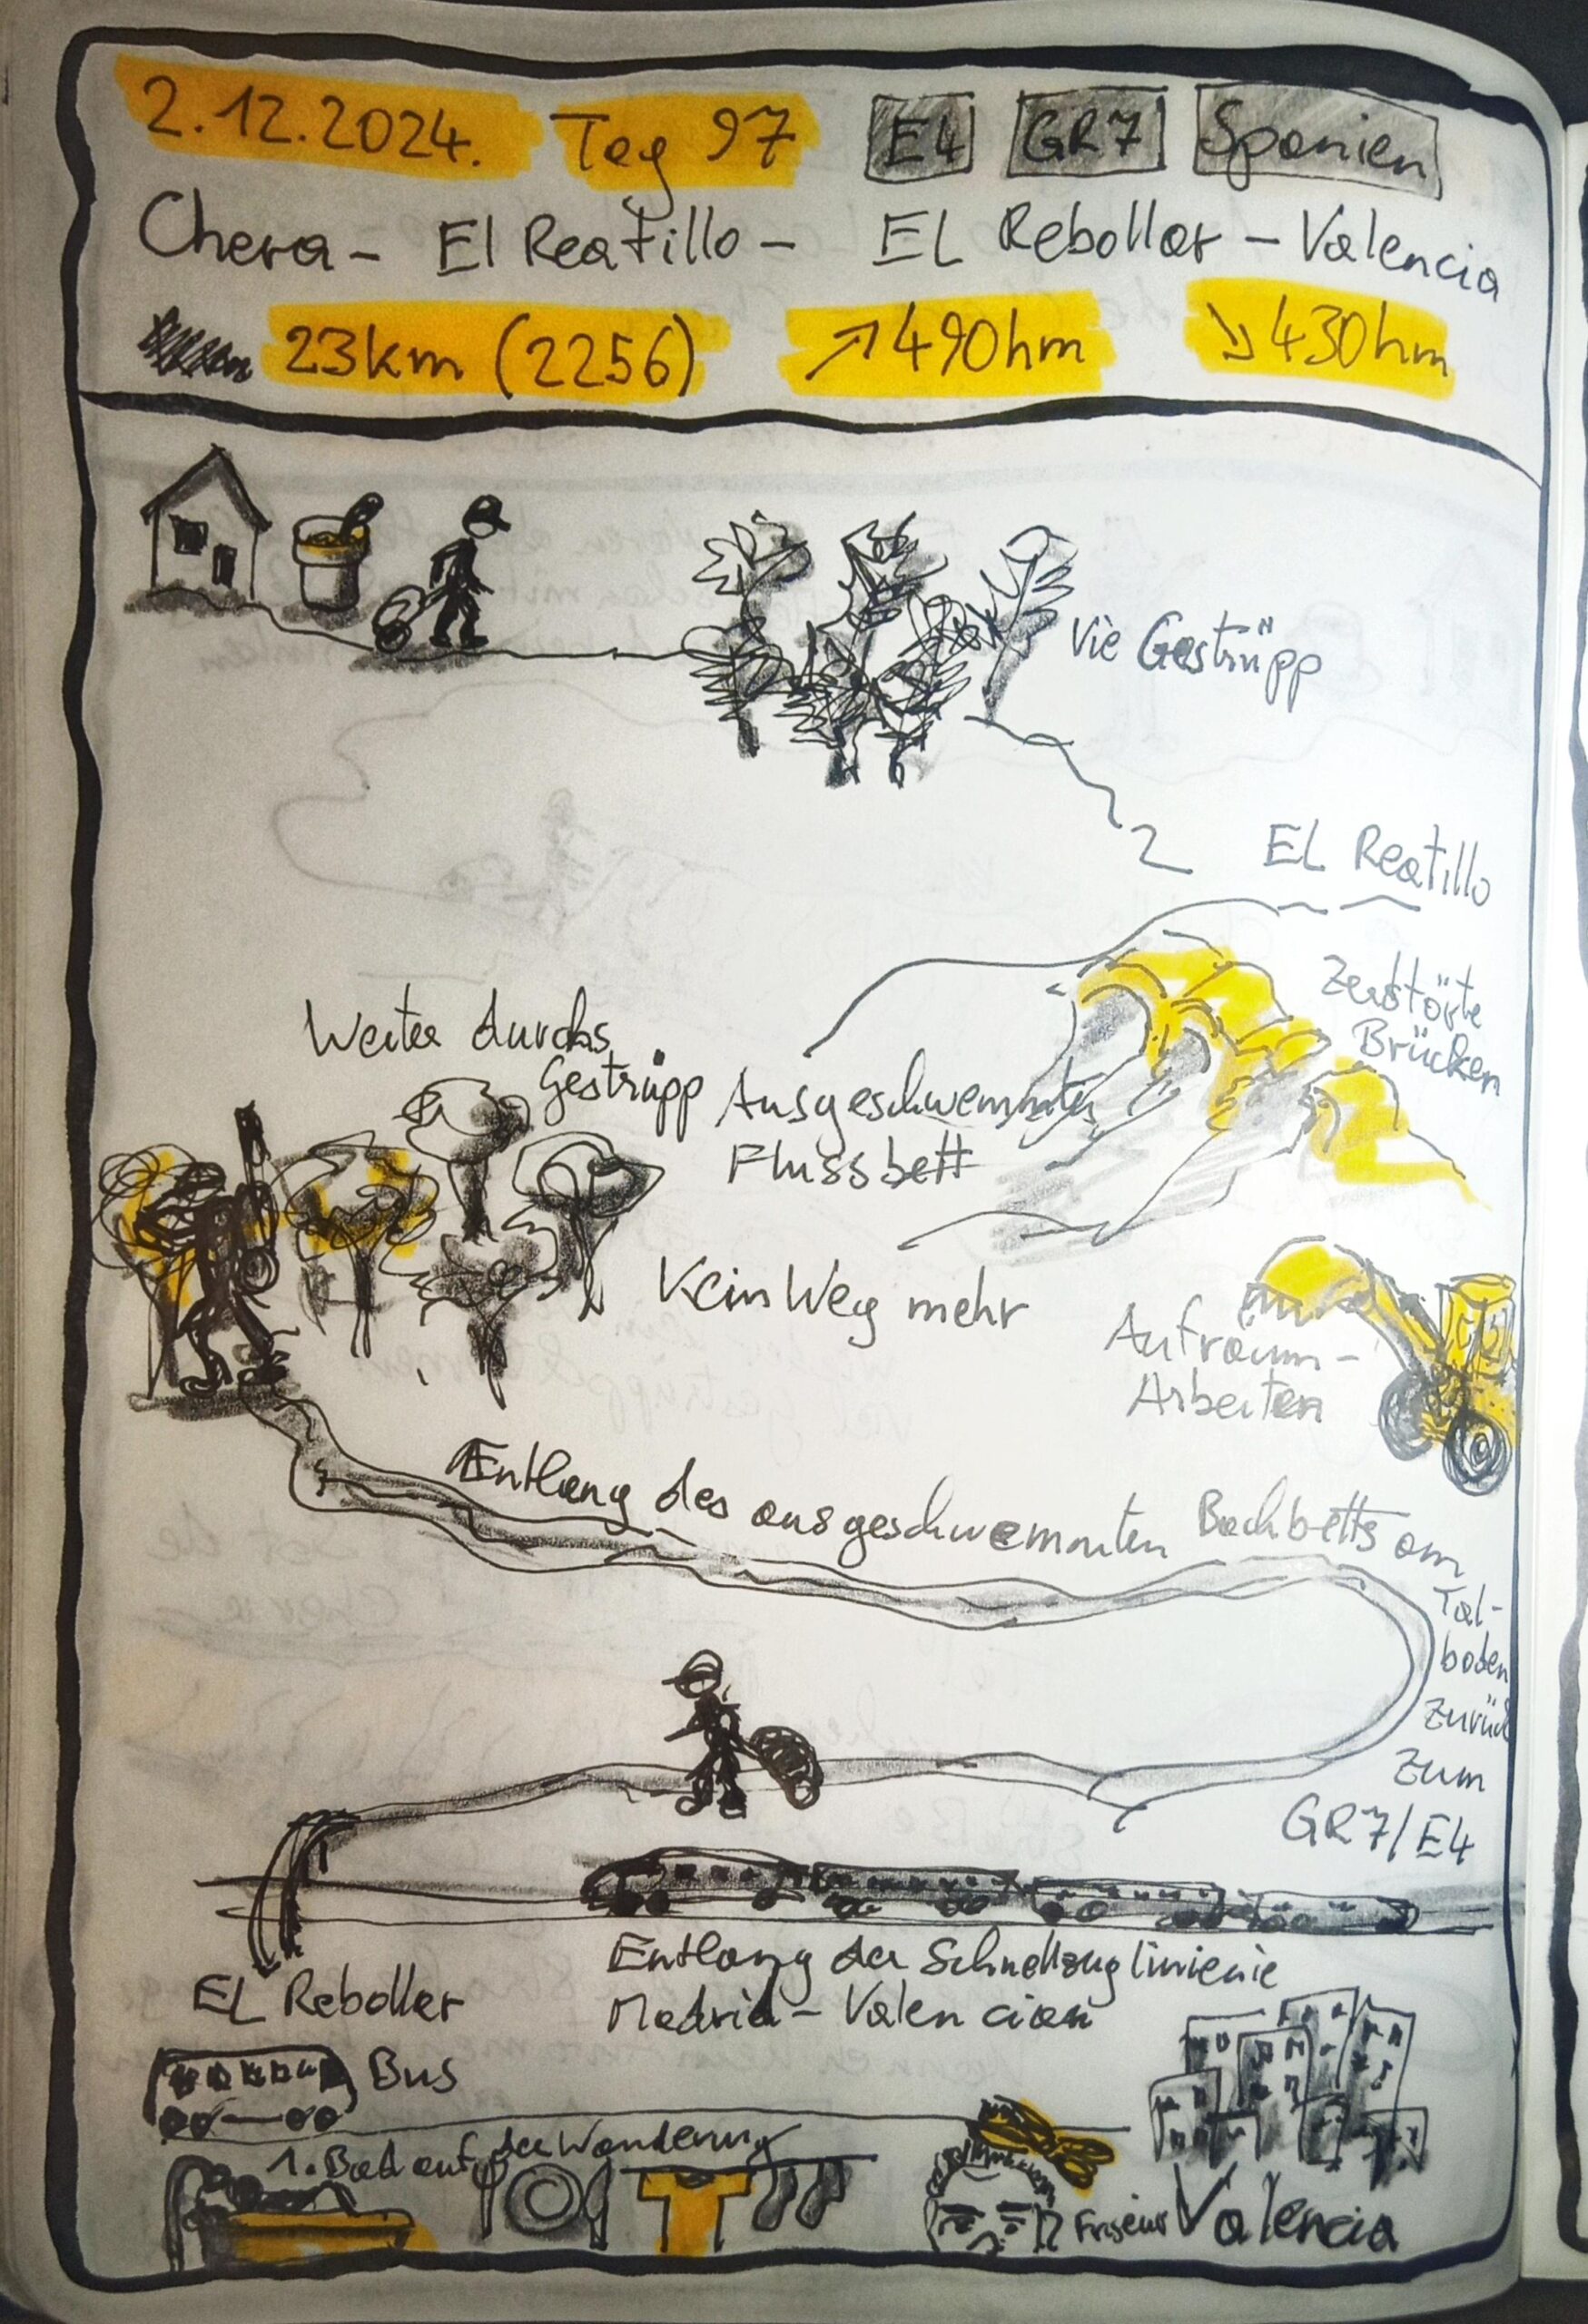 2.12.2024. Tag 97 E4 GR7 Spanien
Chera - El Reatillo - EL Rebollar - Valencia
23km (2256) ↗490hm ↘430hm
Vie Gestrüpp
EL Reatillo
Zerstörte
Brücken
Weiter durchs
Gestrüpp
Ausgeschwemmtes
Flussbett
Kein Weg mehr
Aufräum-
Arbeiten
Entlang des ausgeschwemmten Bachbetts am
Tal-
boden
zurück
zum
GR7/E4
EL Rebollar
Entlang der Schnellzuglinienie
Madrid - Valencian
Bus
1. Bad auf der Wanderung
Friseur
Valencia